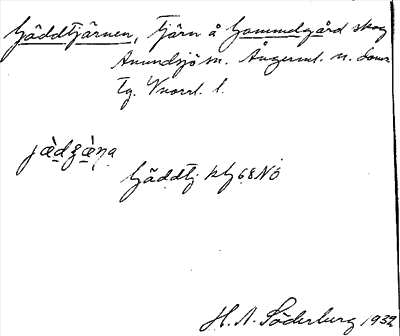 Gäddtjärnen, Tjärn å Gammelgård skog
Anundsjö sn. Ångerml. n. Doms.
Tg. Vnorrl. l.
jæ̀dʒæ̀ṇa
Gäddtj. kbl 68 NÖ
H. A. Söderberg 1932